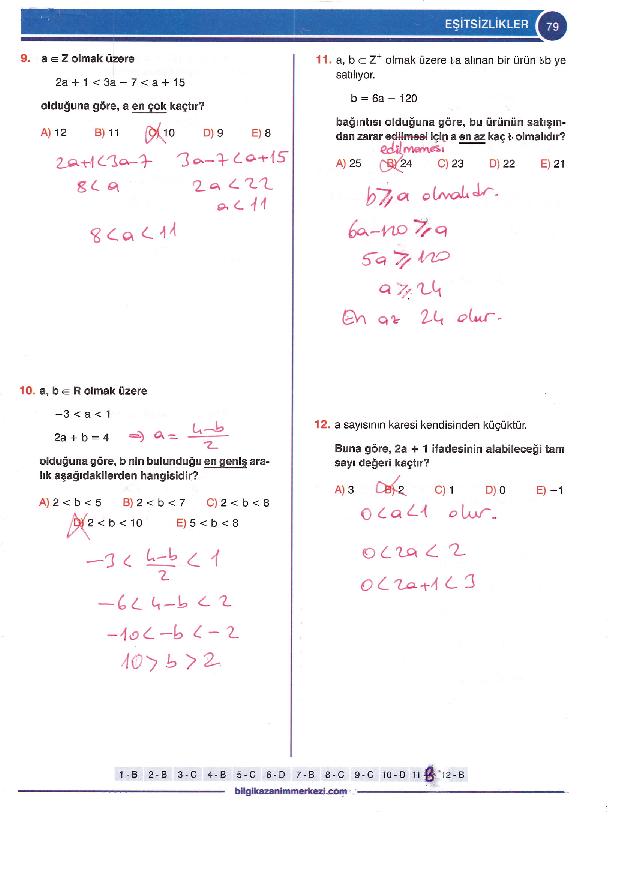 EŞİTSİZLİKLER 79
9. a ∈ Z olmak üzere
2a + 1 < 3a − 7 < a + 15
olduğuna göre, a en çok kaçtır?
A) 12 B) 11 C) 10 D) 9 E) 8
2a+1<3a-7 3a-7<a+15
8<a 2a<22
a<11
8<a<11
10. a, b ∈ R olmak üzere
−3 < a < 1
2a + b = 4 ⇒ a = 4-b
2
olduğuna göre, b nin bulunduğu en geniş ara-
lık aşağıdakilerden hangisidir?
A) 2 < b < 5 B) 2 < b < 7 C) 2 < b < 8
D) 2 < b < 10 E) 5 < b < 8
-3 < 4-b < 1
2
-6 < 4-b < 2
-10 < -b < -2
10 > b > 2
11. a, b ⊂ Z⁺ olmak üzere ₺a alınan bir ürün ₺b ye
satılıyor.
b = 6a − 120
bağıntısı olduğuna göre, bu ürünün satışın-
dan zarar edilmesi için a en az kaç ₺ olmalıdır?
edilmemesi
A) 25 B) 24 C) 23 D) 22 E) 21
b ⩾ a olmalıdır.
6a-120 ⩾ a
5a ⩾ 120
a ⩾ 24
En az 24 olur.
12. a sayısının karesi kendisinden küçüktür.
Buna göre, 2a + 1 ifadesinin alabileceği tam
sayı değeri kaçtır?
A) 3 B) 2 C) 1 D) 0 E) −1
0<a<1 olur.
0<2a<2
0<2a+1<3
1 - B 2 - B 3 - C 4 - B 5 - C 6 - D 7 - B 8 - C 9 - C 10 - D 11 B 12 - B
bilgikazanimmerkezi.com